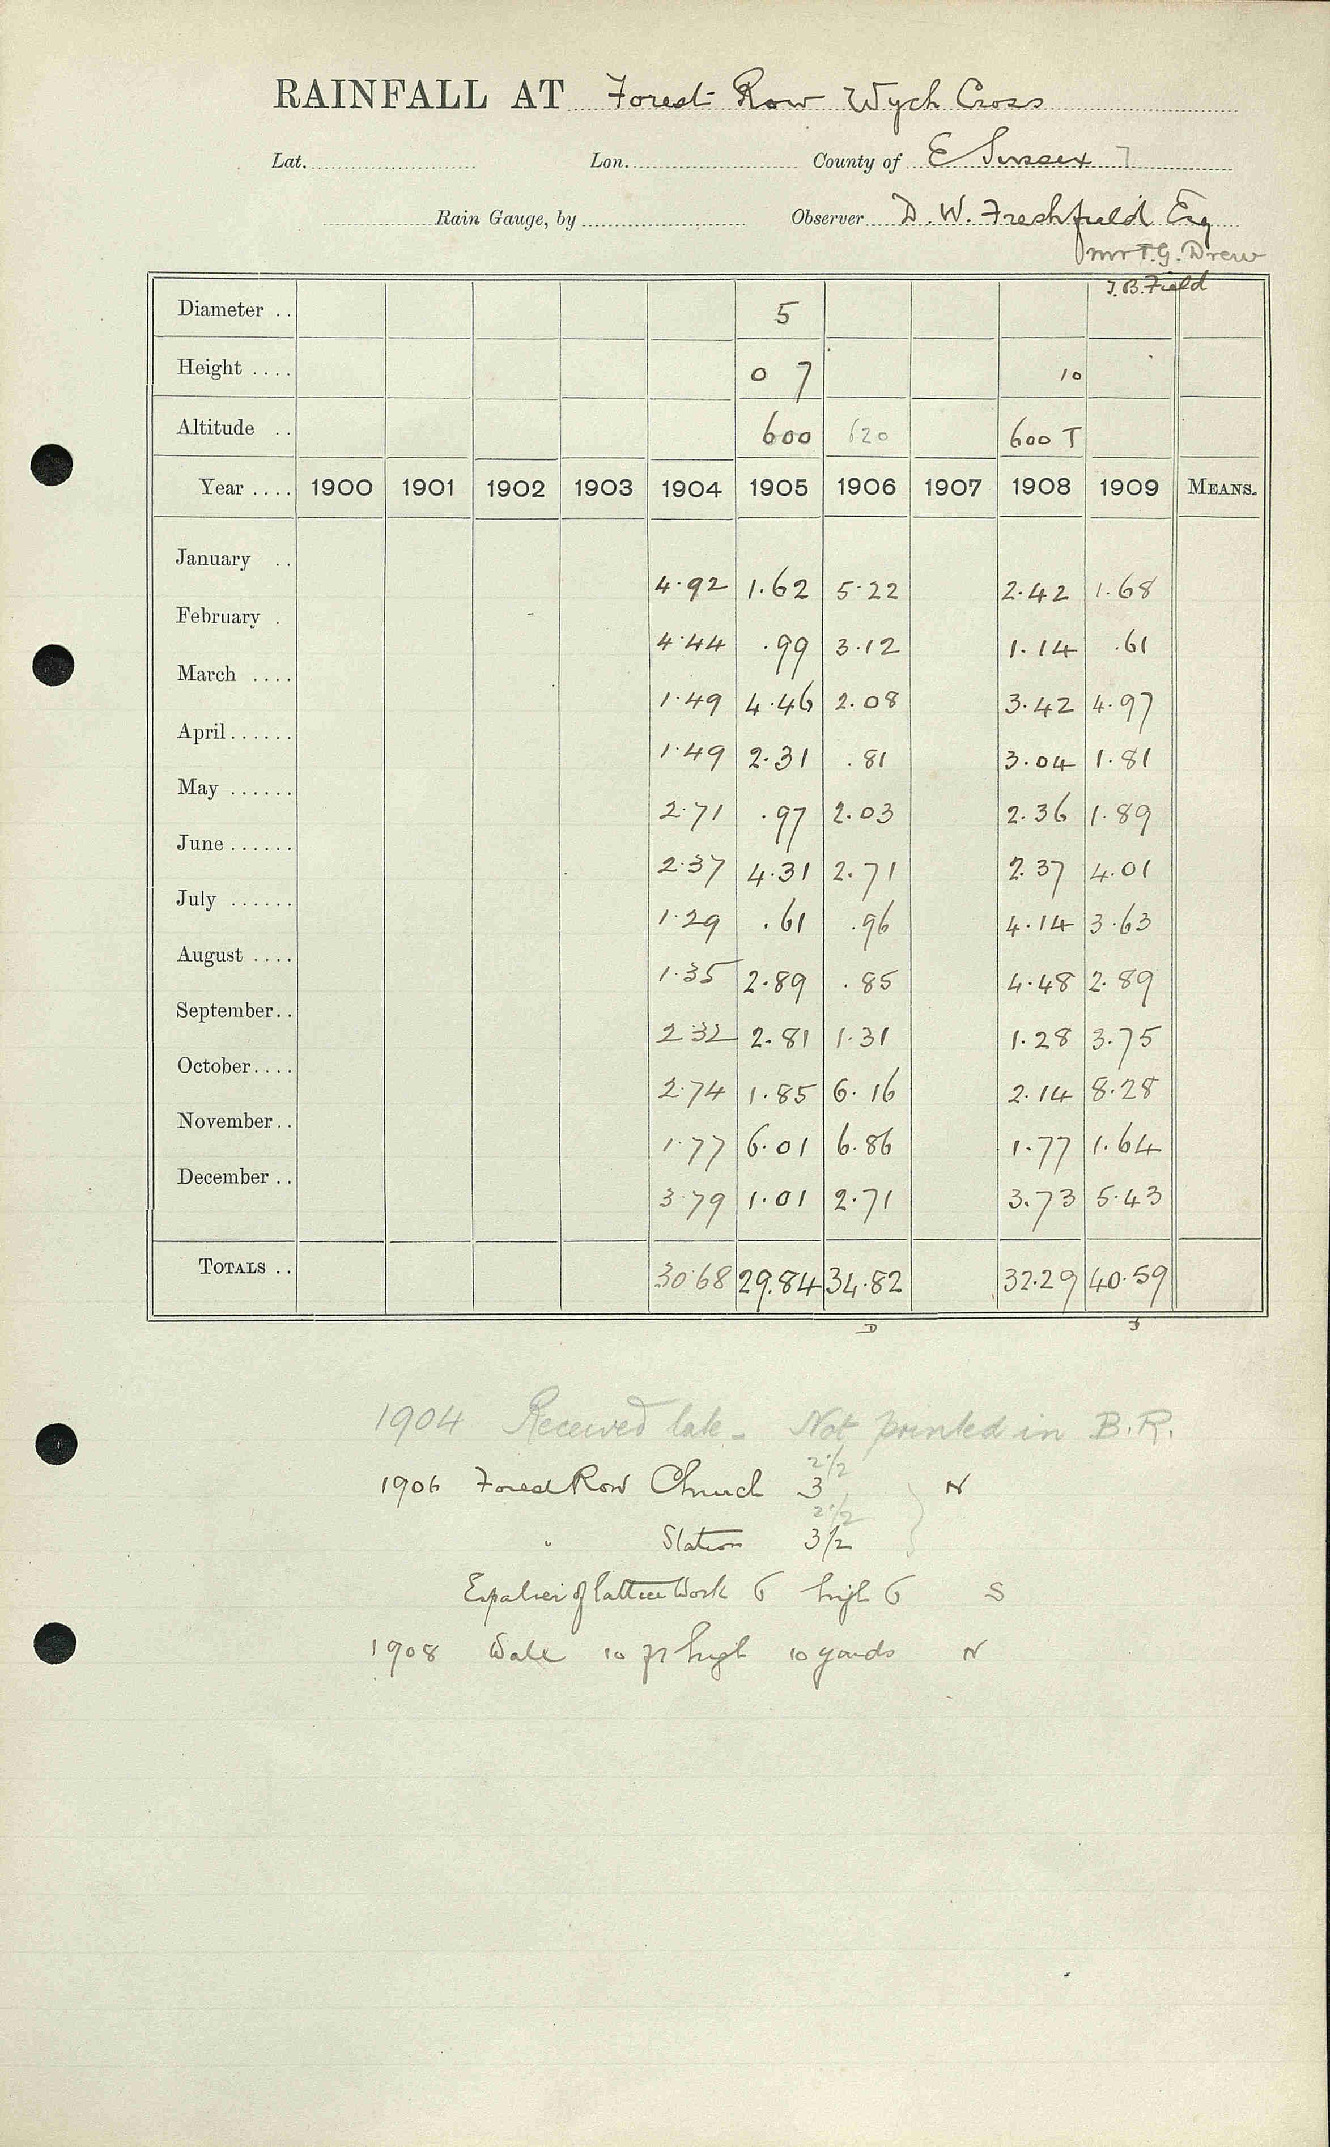 RAINFALL AT Forest Row Wych Cross
Lat. Lon. County of E Sussex 7
Rain Gauge, by Observer D. W. Freshfield Esq
Mr T.G. Drew
J.B. Field
Diameter .. 5
Height .... 0 7 10
Altitude .. 600 620 600 T
Year .... 1900 1901 1902 1903 1904 1905 1906 1907 1908 1909 MEANS.
January .. 4.92 1.62 5.22 2.42 1.68
February . 4.44 .99 3.12 1.14 .61
March .... 1.49 4.46 2.08 3.42 4.97
April...... 1.49 2.31 .81 3.04 1.81
May ...... 2.71 .97 2.03 2.36 1.89
June...... 2.37 4.31 2.71 2.37 4.01
July ...... 1.29 .61 .96 4.14 3.63
August .... 1.35 2.89 .85 4.48 2.89
September.. 2.32 2.81 1.31 1.28 3.75
October.... 2.74 1.85 6.16 2.14 8.28
November.. 1.77 6.01 6.86 1.77 1.64
December .. 3.79 1.01 2.71 3.73 5.43
TOTALS .. 30.68 29.84 34.82 32.29 40.59
D
1904 Received late - Not printed in B.R.
2 1/2
1906 Forest Row Church 3 N
2 1/2
" Station 3 1/2
Espalier of lattice work 6 high 6 S
1908 Wall 10 ft high 10 yards N